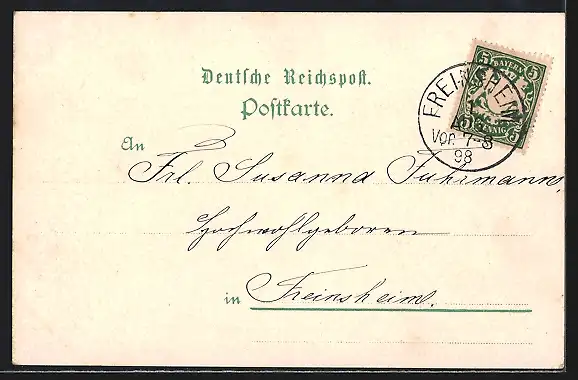 Deutsche Reichspost.
Postkarte.
5 BAYERN 5
5 PFENNIG 5
FREINSHEIM
1
Vor. 7-8
98
An Frl. Susanna Fuhrmann,
Hochwohlgeboren
in Freinsheim.